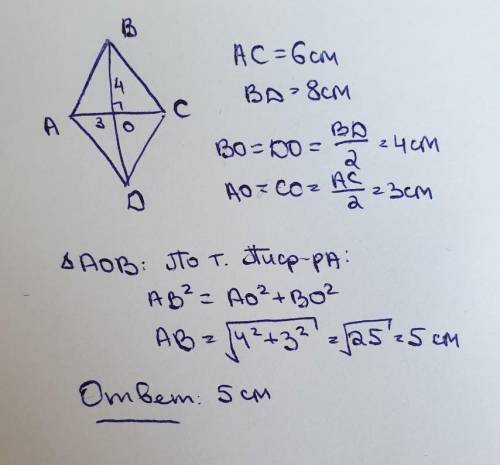 B
4
A 3 O C
D
AC = 6см
BD = 8см
BO = DO = BD/2 = 4см
AO = CO = AC/2 = 3см
△AOB: По т. Пиф-рА:
AB² = AO² + BO²
AB = √(4² + 3²) = √25 = 5 см
Ответ: 5 см